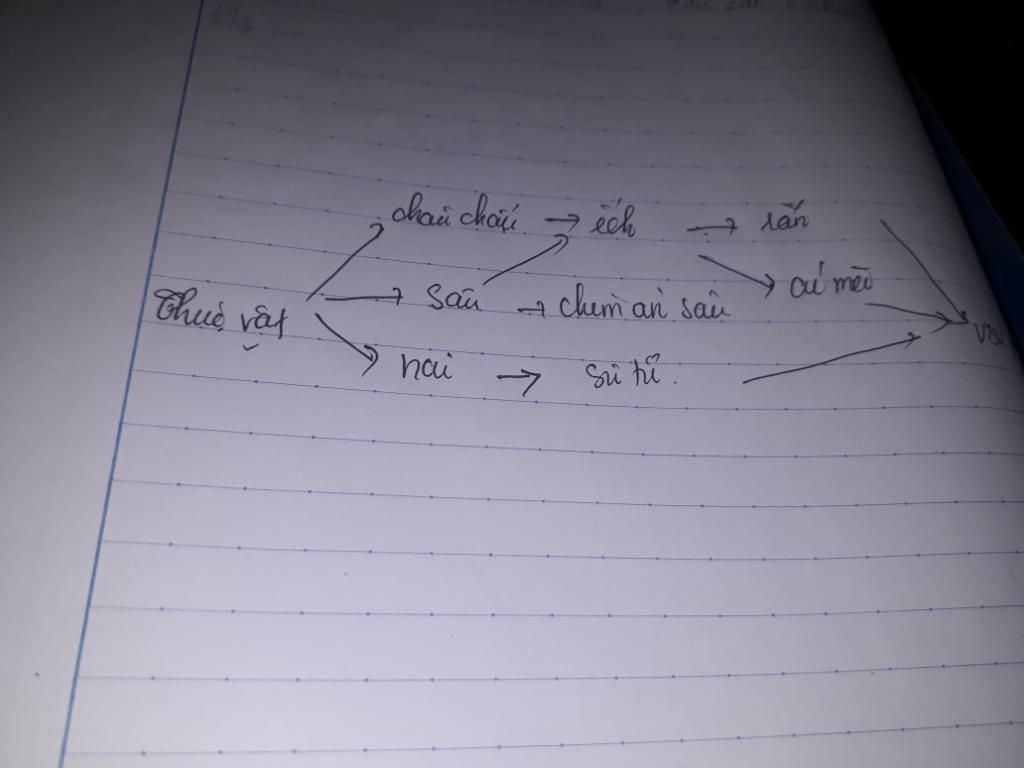 châu chấu → ếch → rắn
cú mèo
Thực vật → sâu → chim ăn sâu
nai → sư tử.